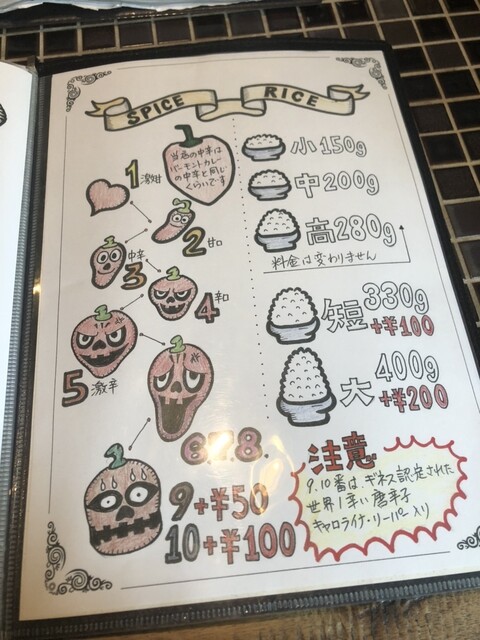 SPICE RICE
当店の中辛は
バーモントカレー
の中辛と同じ
くらいです
1 激甘
2 甘口
中辛
3
4 辛口
5 激辛
6.7.8.
9+¥50
10+¥100
小 150g
中 200g
高 280g
料金は変わりません
短 330g
+¥100
大 400g
+¥200
注意
9.10番は、ギネス認定された
世界1辛い唐辛子
キャロライナ・リーパー入り